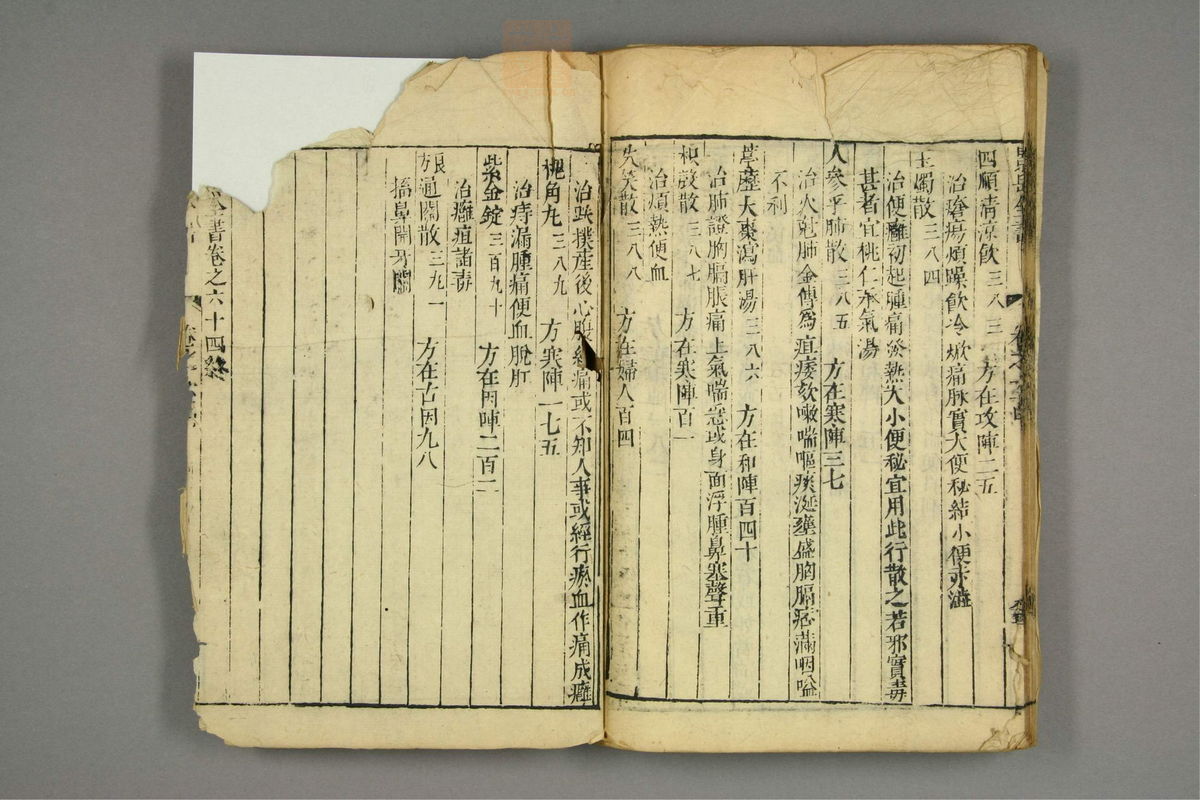 景岳全書
卷之六十四
四順清涼飲三八三 方在攻陣二五
治瘡瘍煩躁飲冷焮痛脉實大便秘結小便赤澁
玉燭散三八四
治便癰初起腫痛發熱大小便秘宜用此行散之若邪實毒
甚者宜桃仁承氣湯
人參平肺散三八五 方在寒陣三七
治火尅肺金傳為疽痿欬嗽喘嘔痰涎壅盛胸膈痞滿咽嗌
不利
葶藶大棗瀉肝湯三八六 方在和陣百四十
治肺證胸膈脹痛上氣喘急或身面浮腫鼻塞聲重
枳殼散三八七 方在寒陣百一
治煩熱便血
失笑散三八八 方在婦人百四
治跌撲產後心腹絞痛或不知人事或經行瘀血作痛成癰
槐角丸三八九 方寒陣一七五
治痔漏腫痛便血脫肛
紫金錠三百九十 方在因陣二百二
治癰疽諸毒
良方通關散三九一 方在古因九八
搐鼻開牙關
全書卷之六十四終